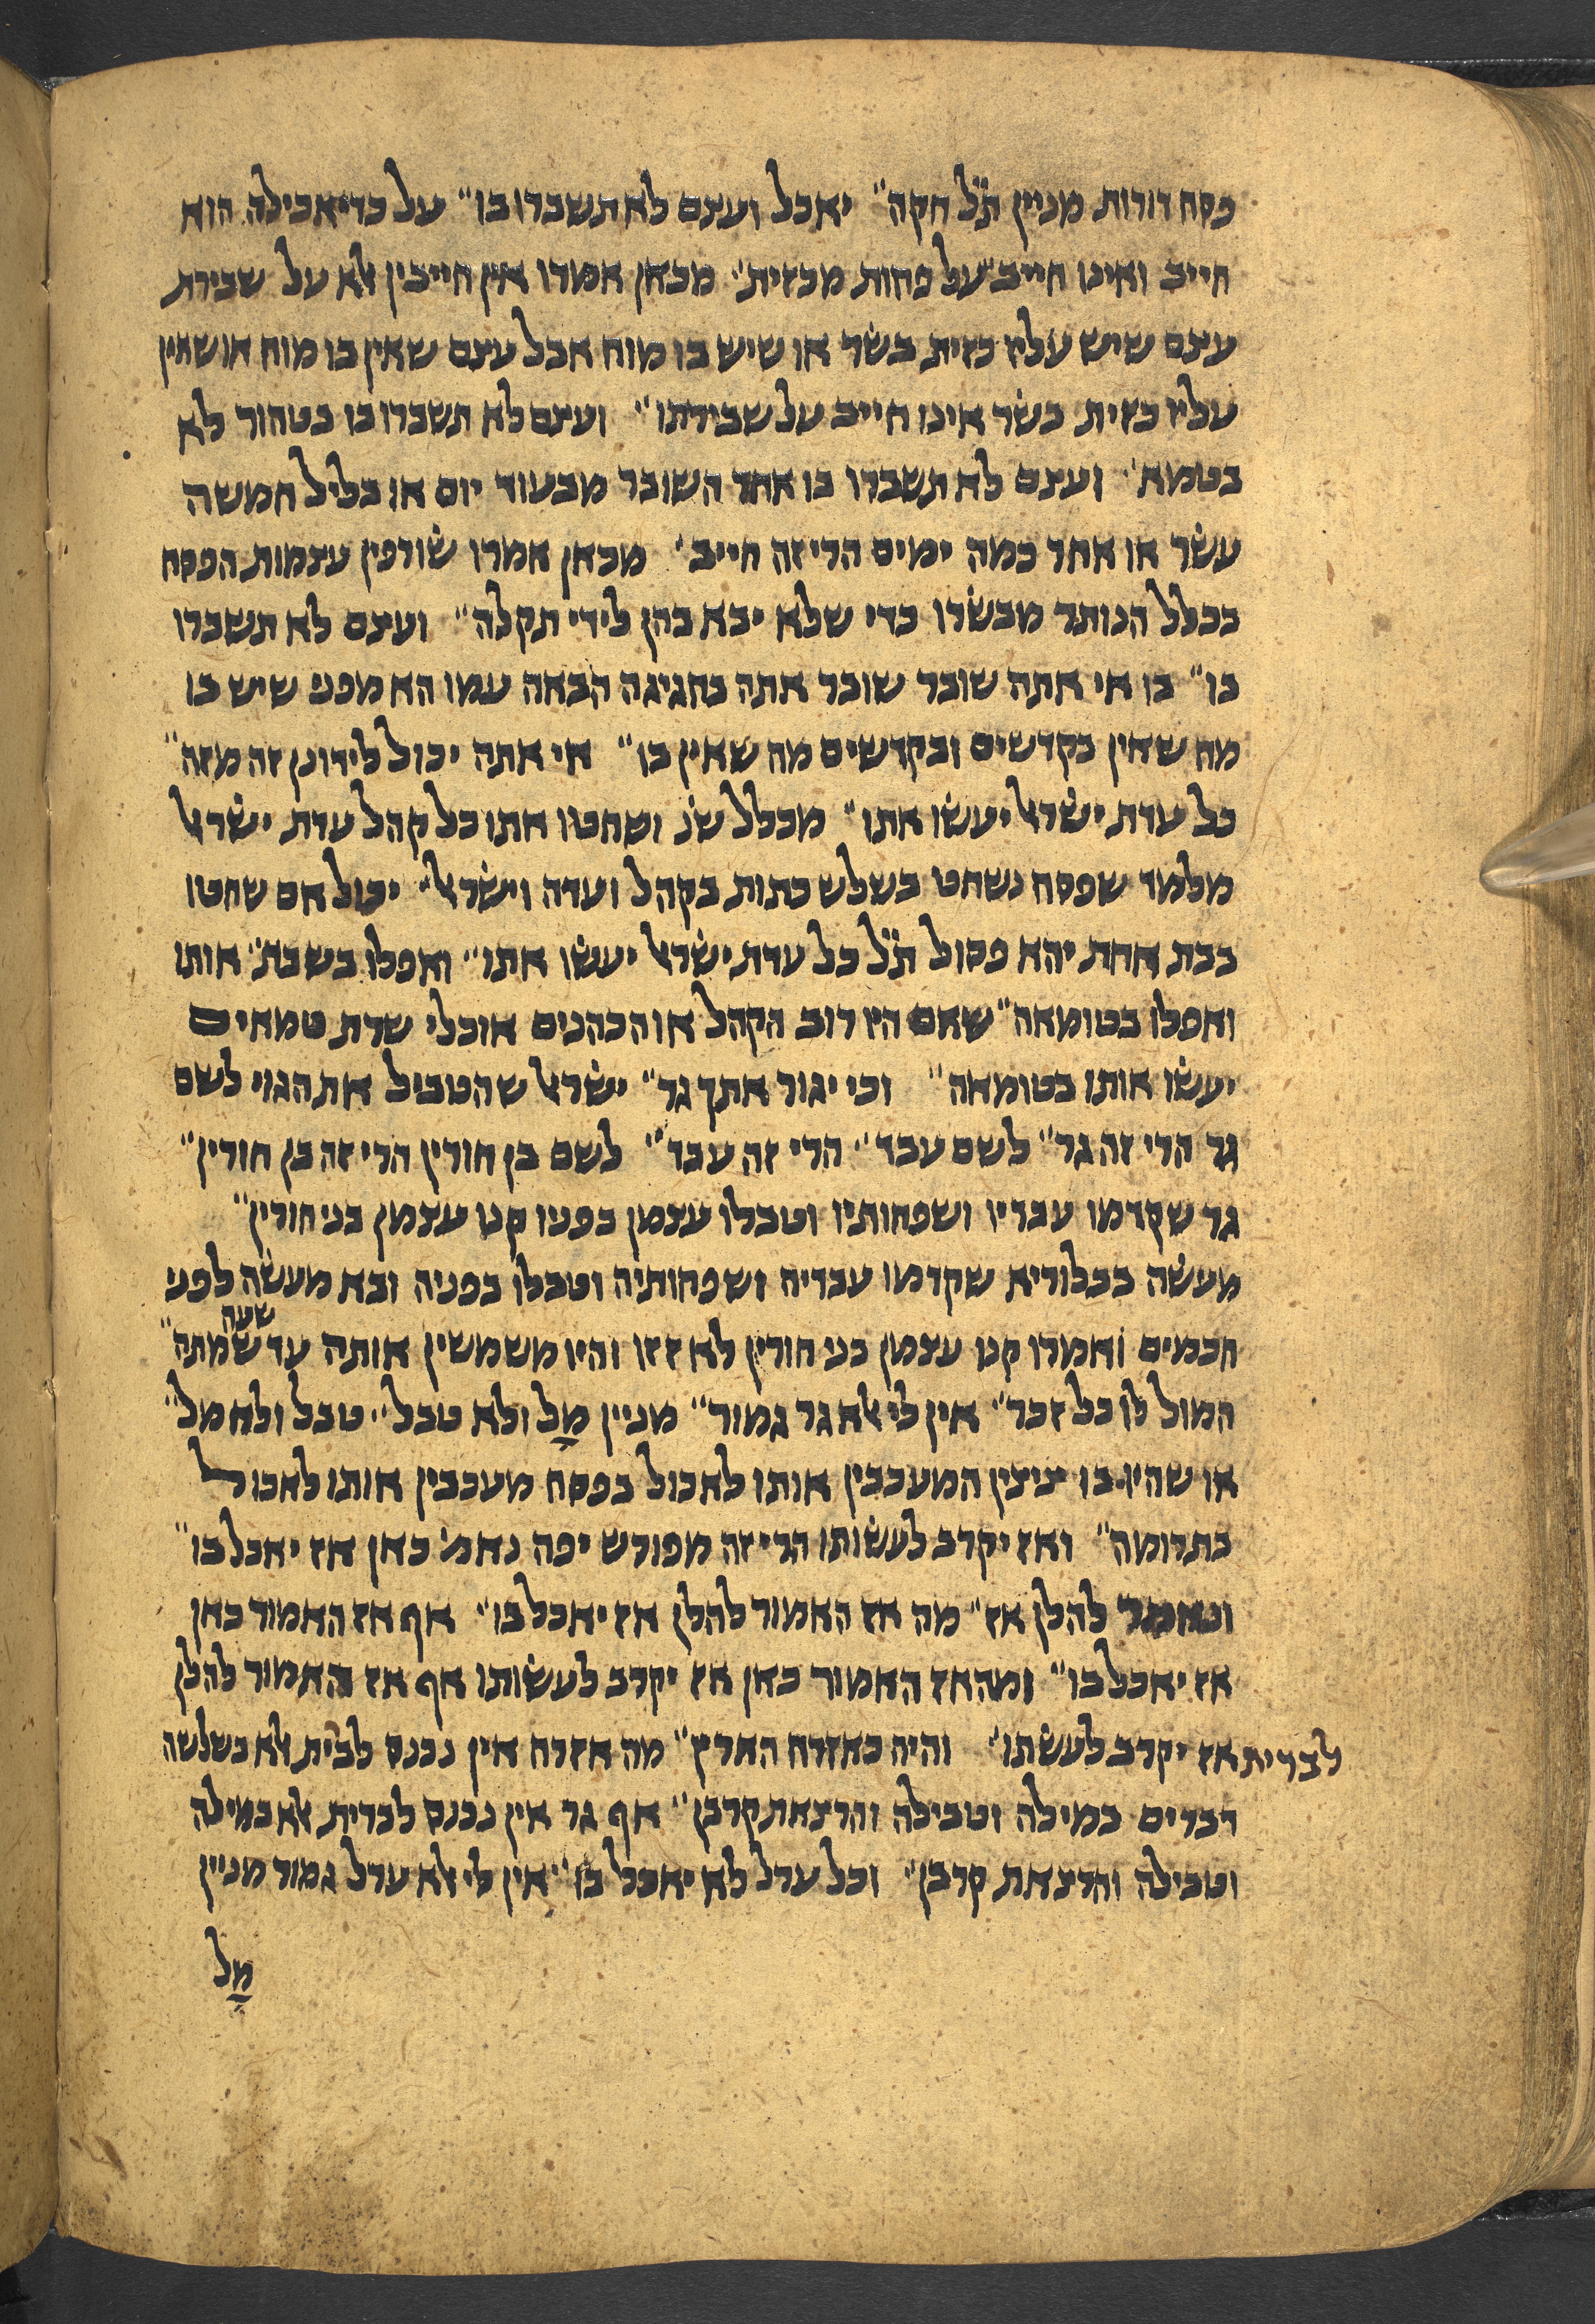 פסח דורות מניין ת̇ל̇ חקה״ יאכל ועצם לא תשברו בו״ על כדי אכילה הוא
חייב ואינו חייב על פחות מכזית׳׳ מכאן אמרו אין חייבין אלא על שבירת
עצם שיש עליו כזית בשׂר או שיש בו מוח אבל עצם שאין בו מוח או שאין
עליו כזית בשׂר אינו חייב על שבירתו״ ועצם לא תשברו בו בטהור לא
בטמא׳׳ ועצם לא תשברו בו אחד השובר מבעוד יום או בליל חמשה
עשׂר או אחר כמה ימים הרי זה חייב׳׳ מכאן אמרו שׂורפין עצמות הפסח
בכלל הנותר מבשׂרו כדי שלא יבא בהן לידי תקלה״ ועצם לא תשברו
בו״ בו אי אתה שובר שובר אתה בחגיגה הבאה עמו הא מפני שיש בו
מה שאין בקדשים ובקדשים מה שאין בו״ אי אתה יכול לידונן זה מזה״
כל עדת ישׂראל יעשׂו אתו״ מכלל שנ׳ ושחטו אתו כל קהל עדת ישׂראל
מלמד שפסח נשחט בשלש כתות בקהל ועדה וישׂראל״ יכול אם שחטו
בכת אחת יהא פסול ת̇ל̇ כל עדת ישׂראל יעשׂו אתו״ ואפלו בשבת׳׳ אותו
ואפלו בטומאה״ שאם היו רוב הקהל או הכהנים או כלי שרת טמאים
יעשׂו אותו בטומאה״ וכי יגור אתך גר״ ישׂראל שהטביל את הגוי לשם
גר הרי זה גר״ לשם עבד׳׳ הרי זה עבד״ לשם בן חורין הרי זה בן חורין״
גר שקדמו עבדיו ושפחותיו וטבלו עצמן בפניו קנו עצמן בני חורין״
מעשׂה בבלוריא שקדמו עבדיה ושפחותיה וטבלו בפניה ובא מעשׂה לפני
חכמים ואמרו קנו עצמן בני חורין לא זזו והיו משמשין אותה עד שעה שמתה״
המול לו כל זכר״ אין לי אלא גר גמור״ מניין מל ולא טבל״ טבל ולא מל״
או שהיו בו ציצין המעכבין אותו לאכול בפסח מעכבין אותו לאכול
בתרומה״ ואז יקרב לעשׂותו הרי זה מפורש יפה נאמ׳ כאן אז יאכל בו״
ונאמר להלן אז״ מה אז האמור להלן אז יאכל בו״ אף אז האמור כאן
אז יאכל בו״ ומה אז האמור כאן אז יקרב לעשׂותו אף אז האמור להלן
אז יקרב לעשׂתו״ והיה כאזרח הארץ״ מה אזרח אין נכנס לבית אלא בשלשה
לברית
דברים במילה וטבילה והרצאת קרבן״ אף גר אין נכנס לברית אלא במילה
וטבילה והרצאת קרבן״ וכל ערל לא יאכל בו״ אין לי אלא ערל גמור מניין
מל